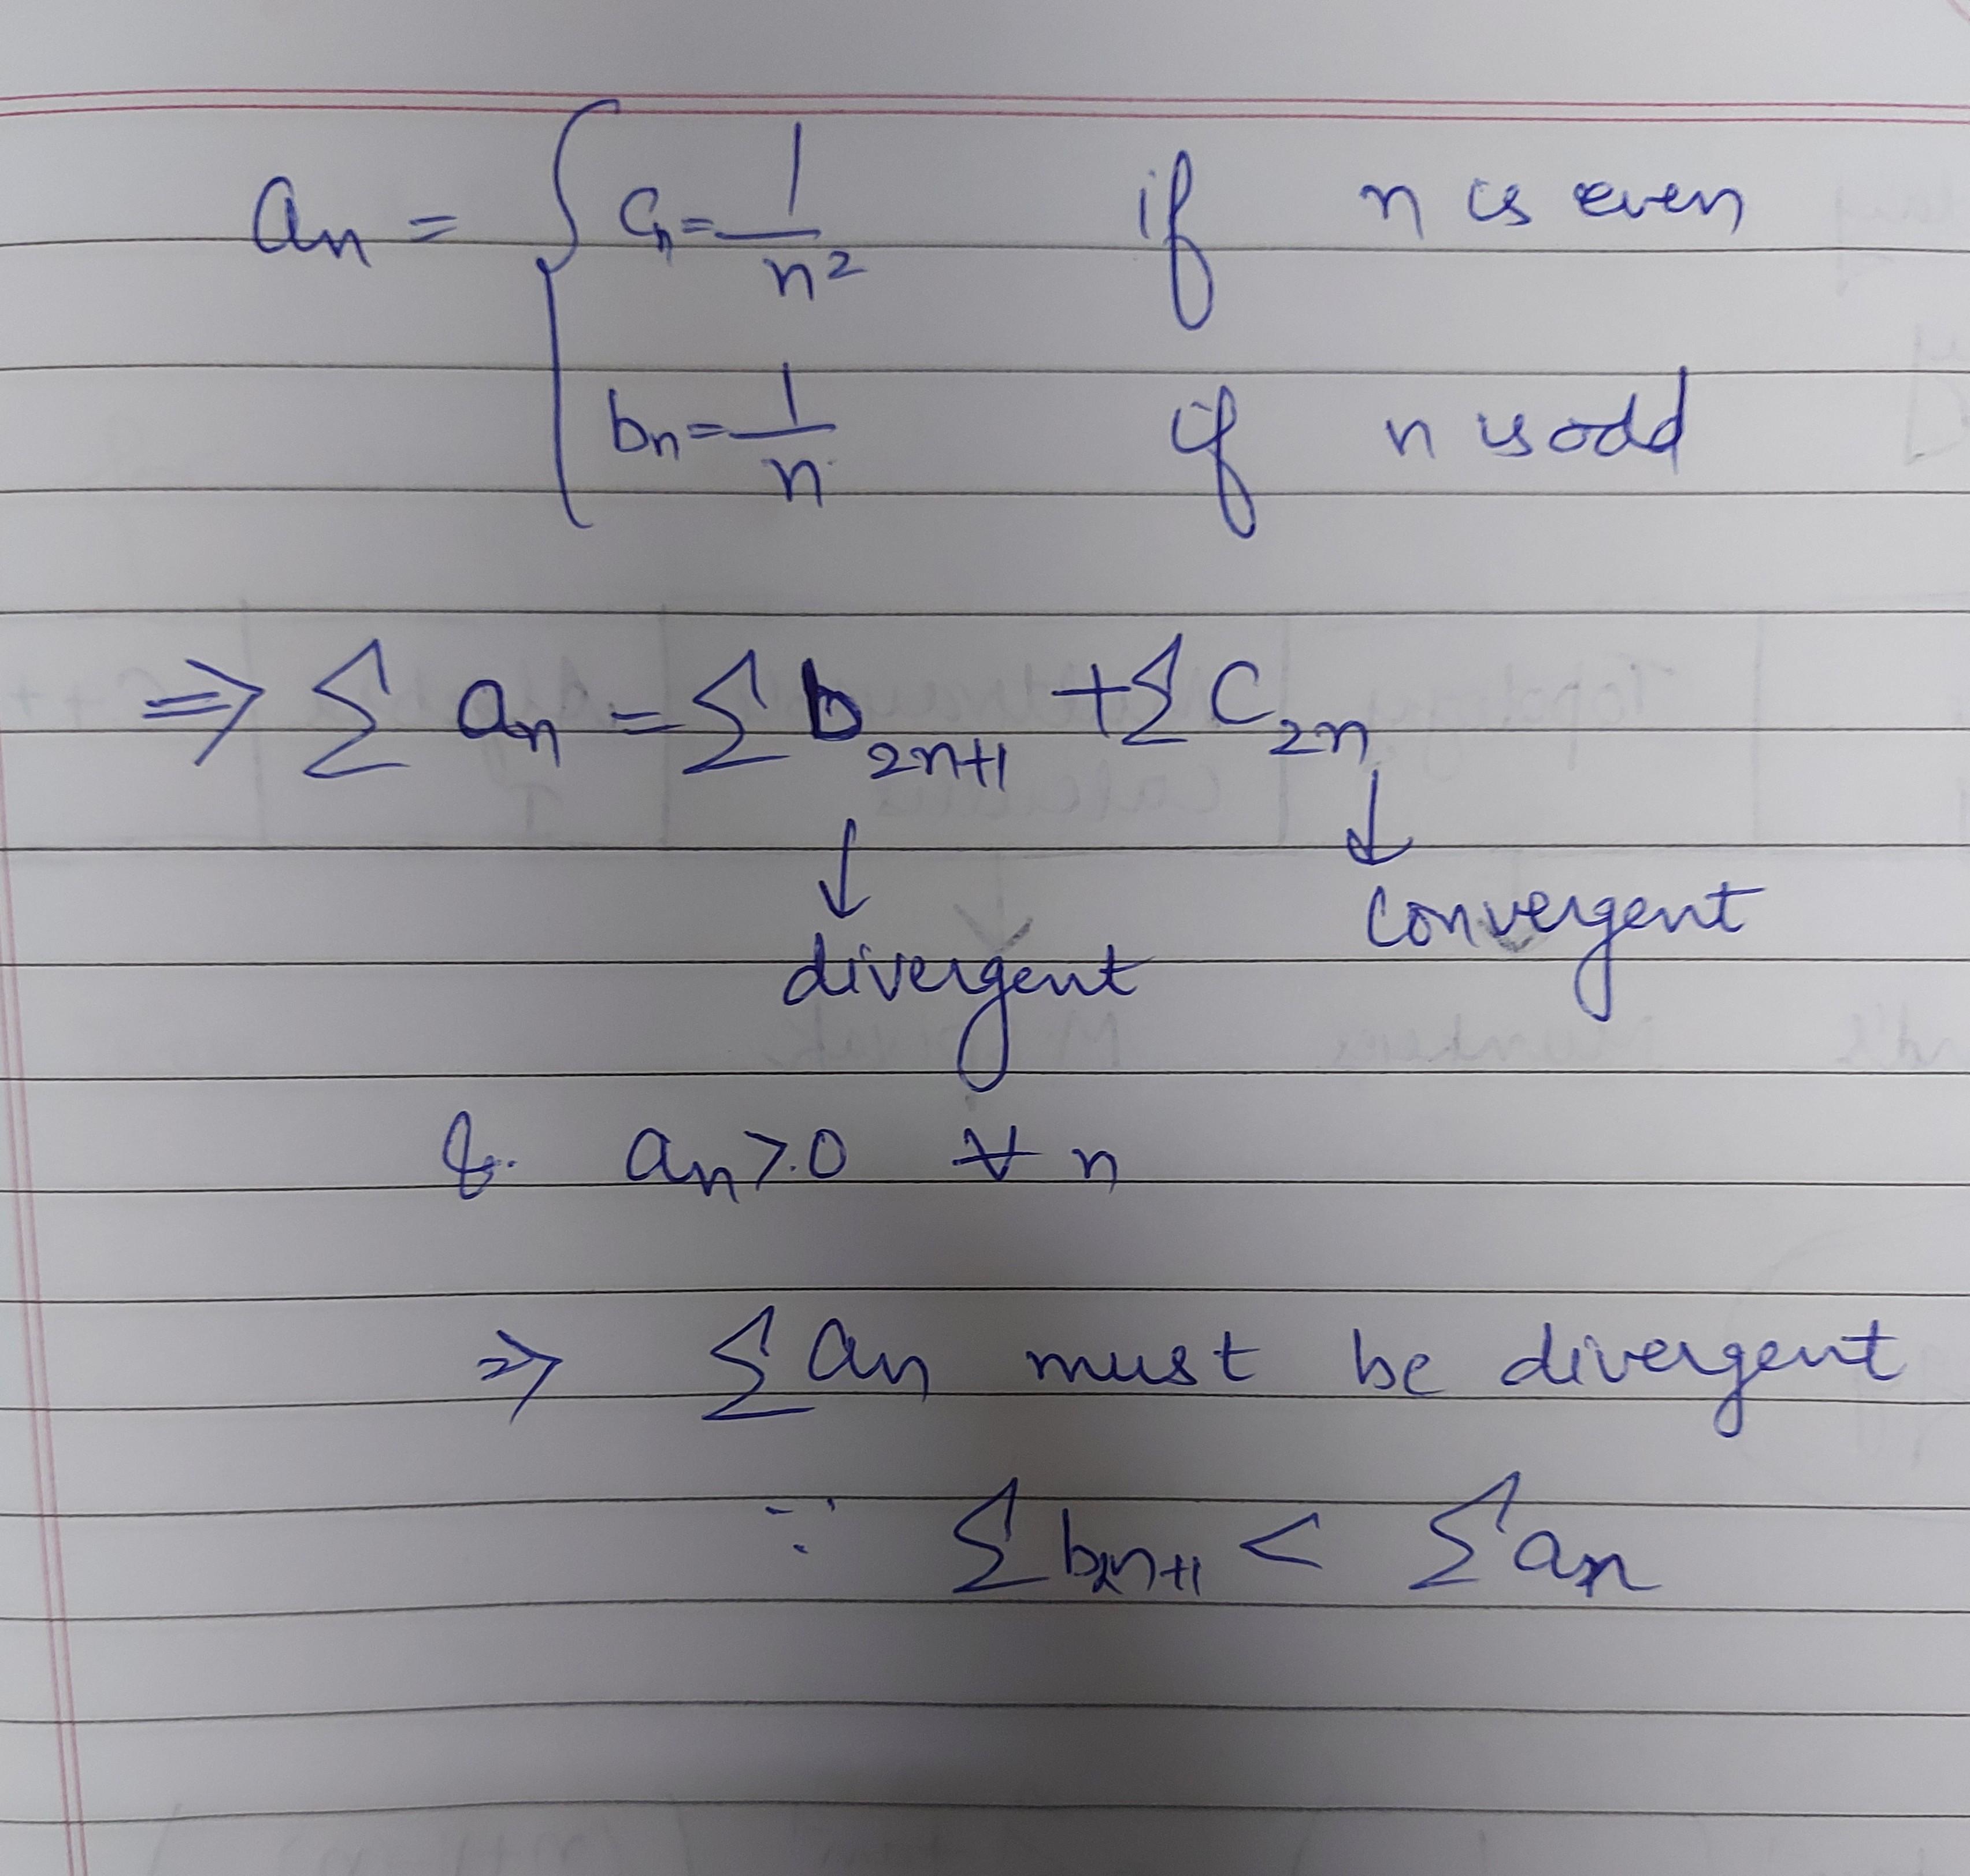 aₙ = { cₙ = 1/n² if n is even
bₙ = 1/n if n is odd
⇒ Σ aₙ = Σ b₂ₙ₊₁ + Σ C₂ₙ
↓ ↓
convergent
divergent
& aₙ > 0 ∀ n
⇒ Σ aₙ must be divergent
∵ Σ b₂ₙ₊₁ < Σ aₙ